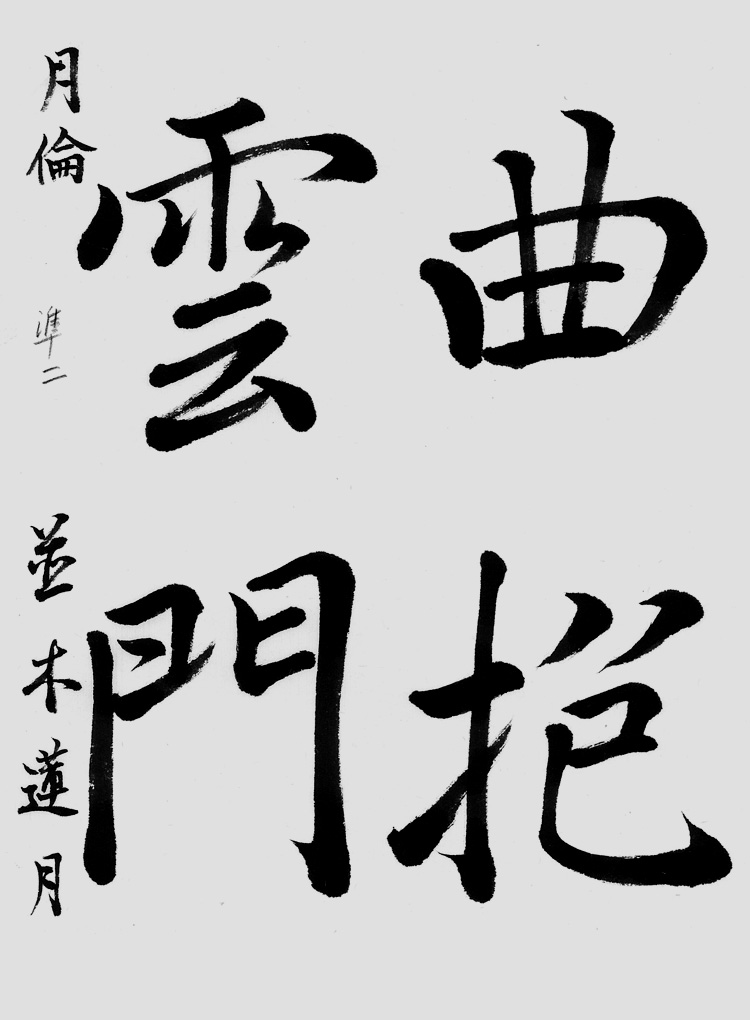 曲抱
雲門
月倫 準二 並木蓮月